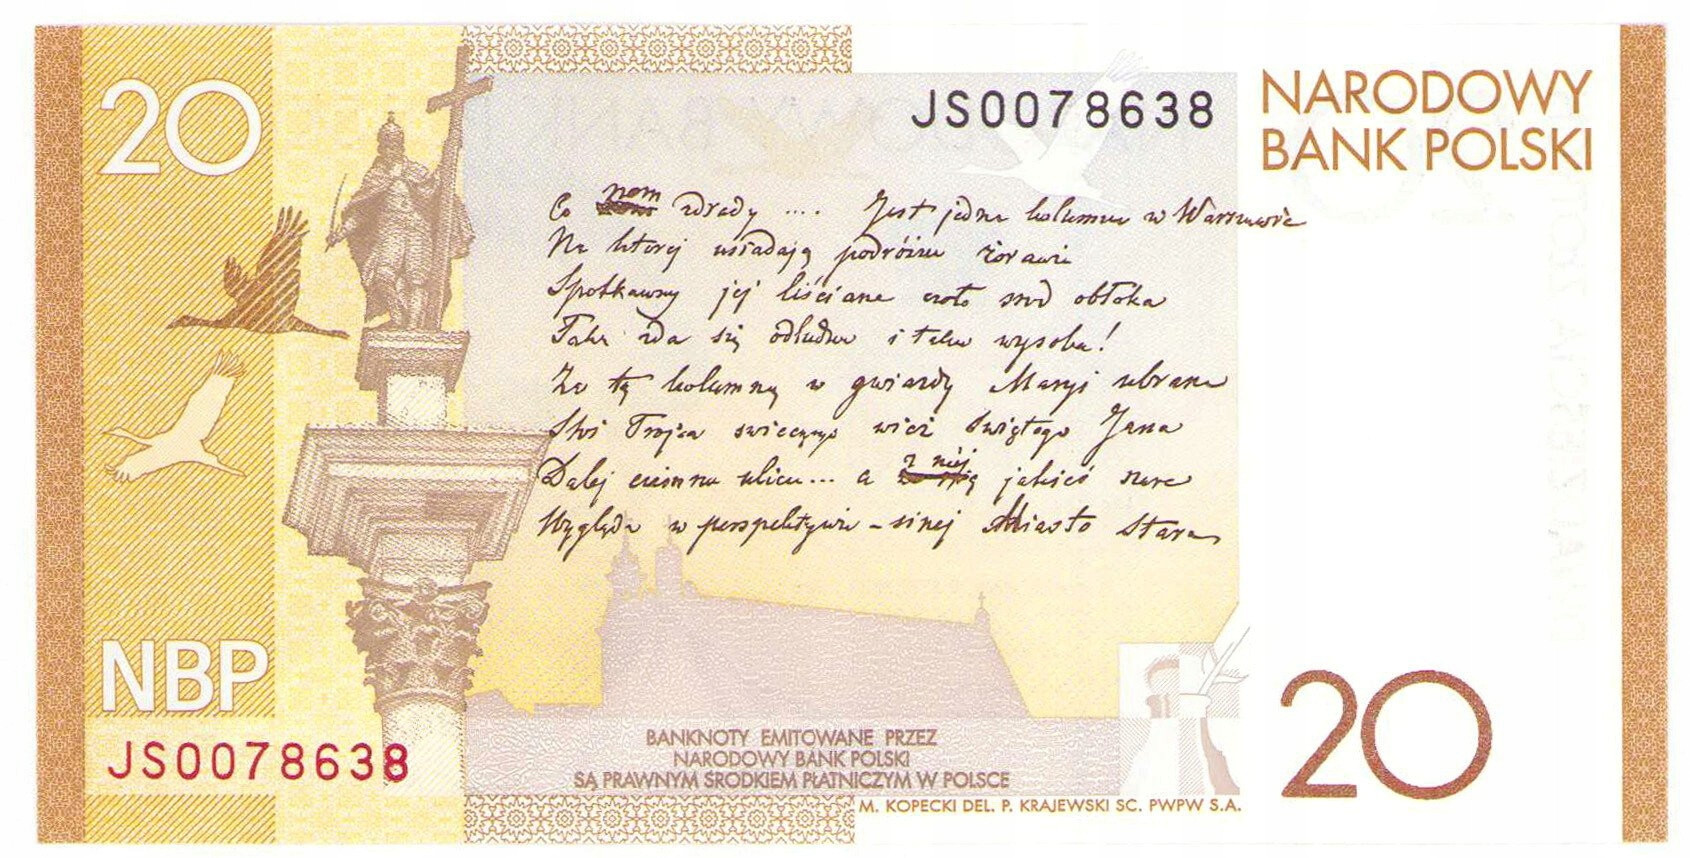 20
JS0078638
NARODOWY
BANK POLSKI
Co nam zdrady .... Jest jedna kolumna w Warszawie
Na ktorej usiadają podróżne żorawie
Spotkawszy jej liściane czoło środ obłoka
Taka zda się odludna i taka wysoka!
Za tą kolumną w gwiazdy Maryi ubrana
Stoi Trojca swiecznego wież Świętego Jana
Dalej ciemna ulica... a z niéj jakieś szare
Wygląda w perspektywie - sinej Miasto Stare
NBP
JS0078638
BANKNOTY EMITOWANE PRZEZ
NARODOWY BANK POLSKI
SĄ PRAWNYM ŚRODKIEM PŁATNICZYM W POLSCE
M. KOPECKI DEL. P. KRAJEWSKI SC. PWPW S.A.
20